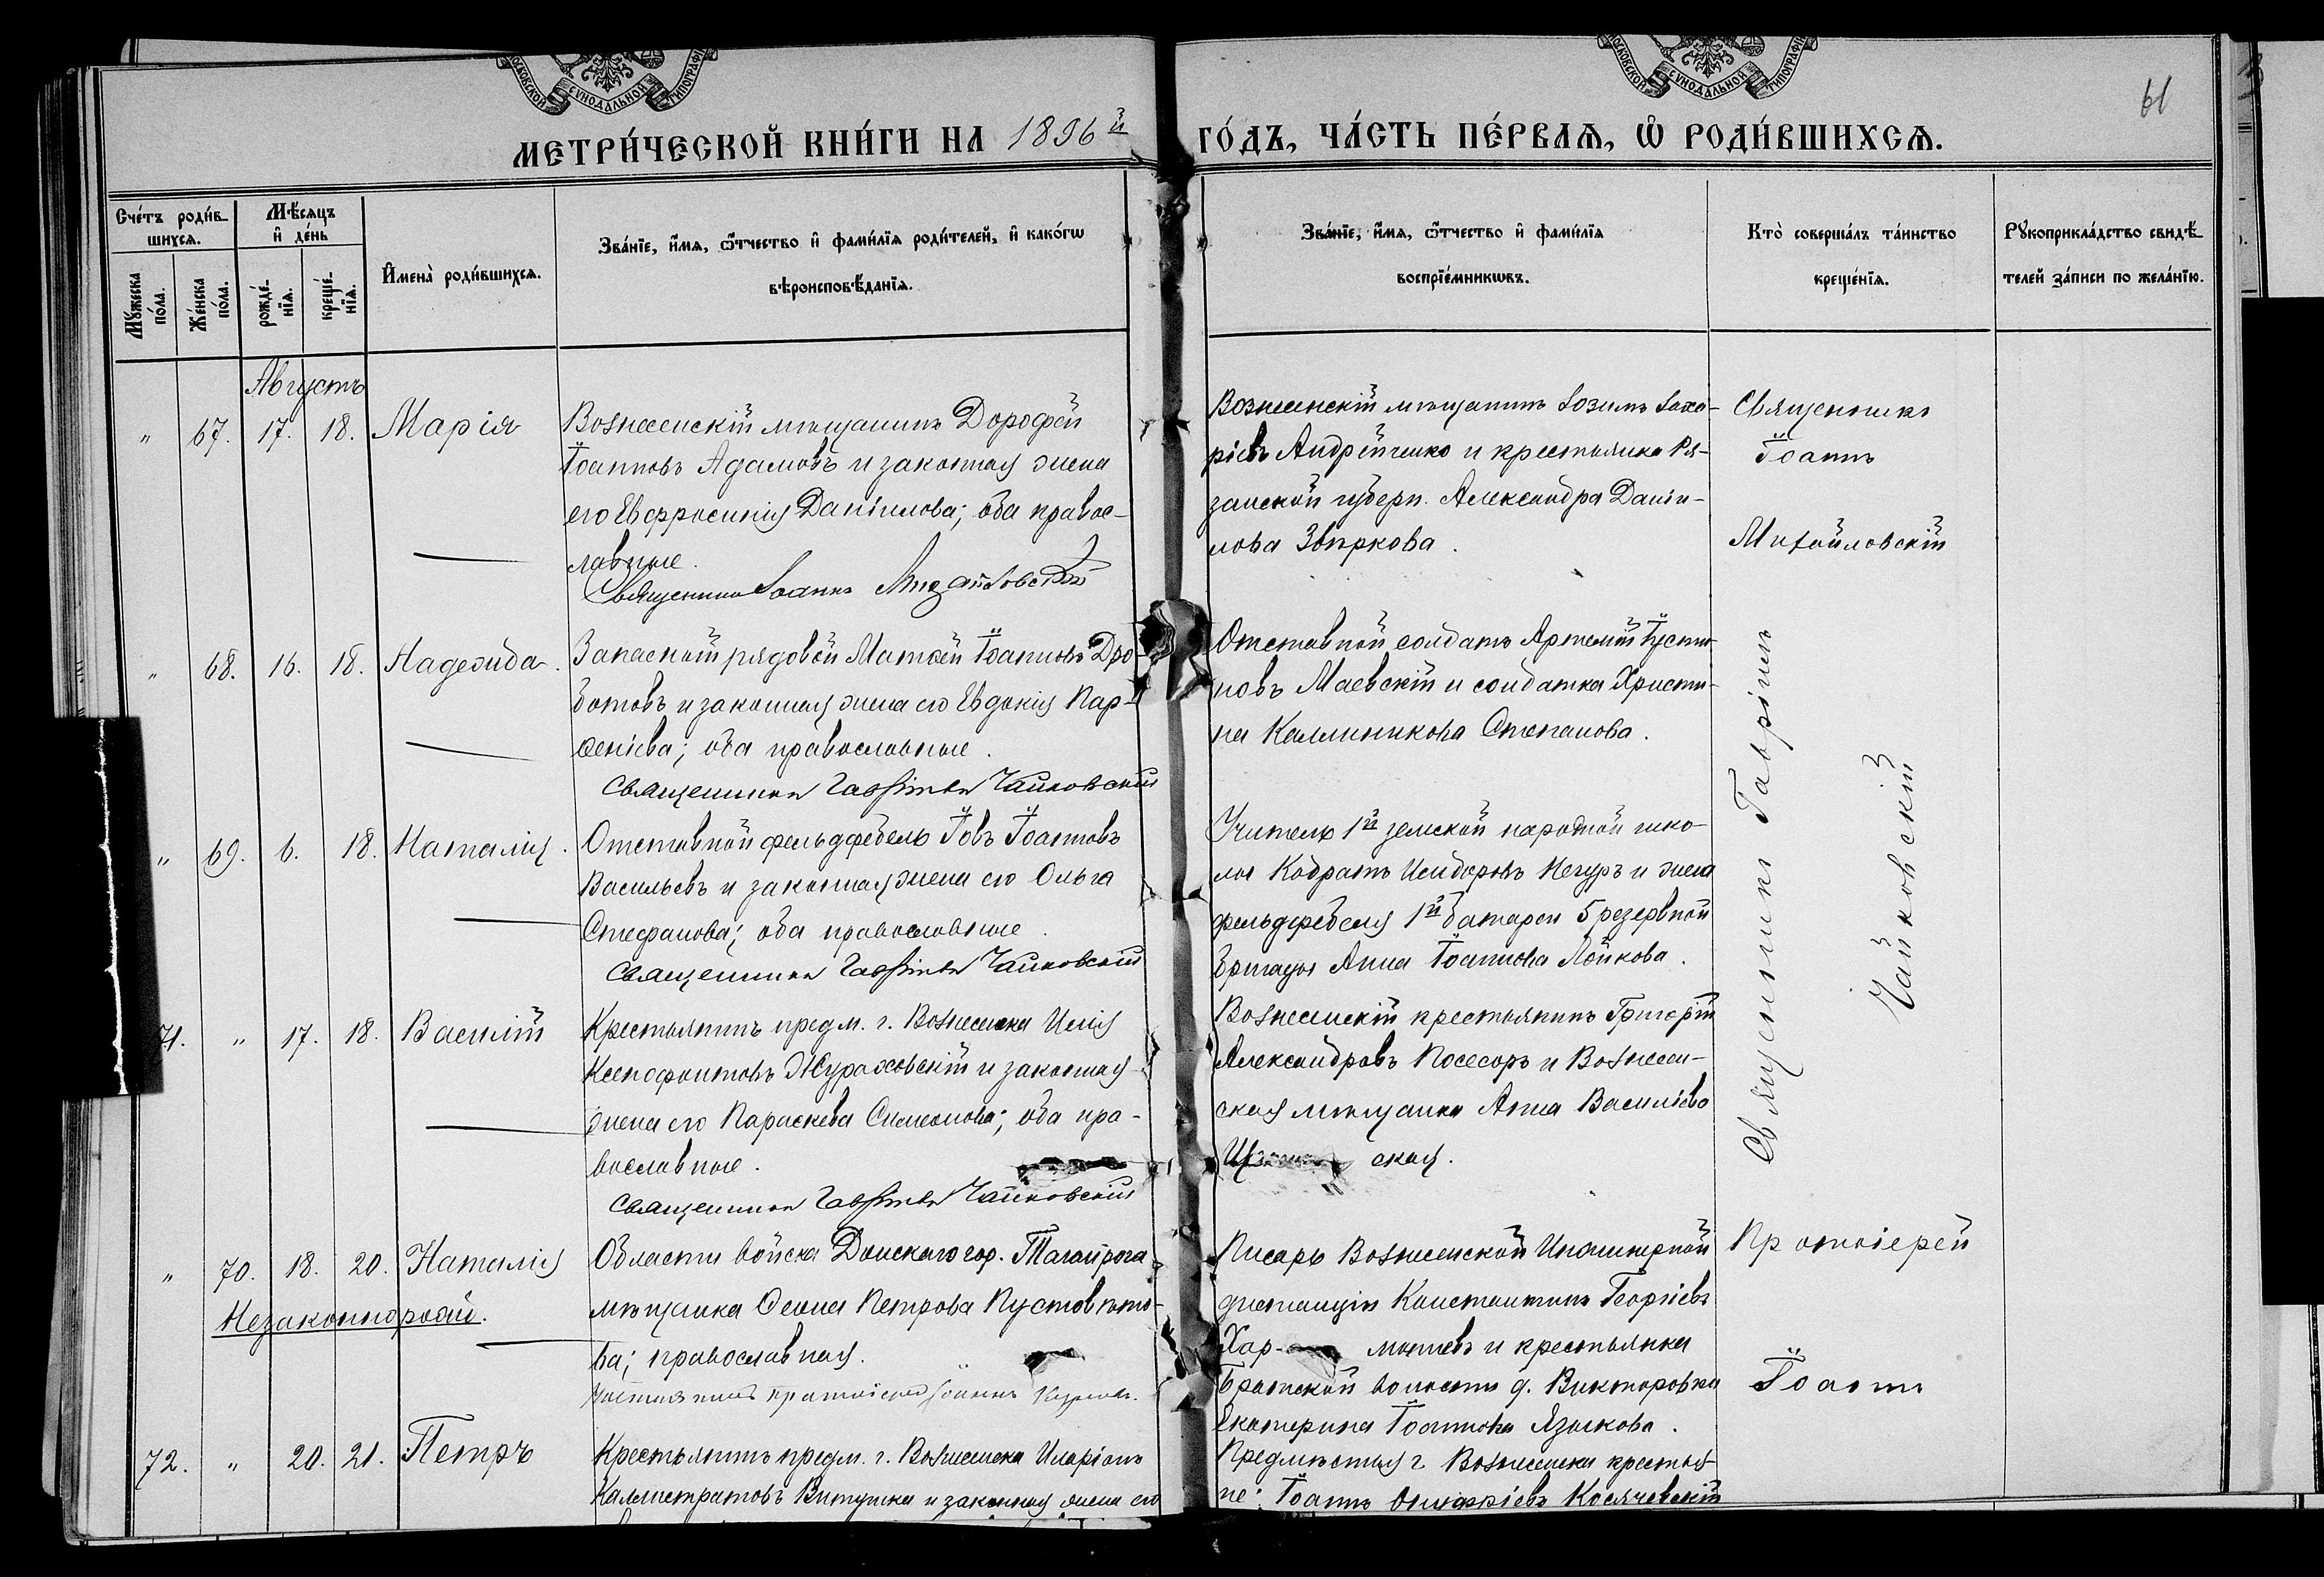 МОСКОВСКОЙ СѴНОДАЛЬНОЙ ТИПОГРАФІИ
МОСКОВСКОЙ СѴНОДАЛЬНОЙ ТИПОГРАФІИ
61
МЕТРИ́ЧЕСКОЙ КНИ́ГИ НА 1896й ГО́ДЪ, ЧА́СТЬ ПЕ́РВАѦ, Ѡ҆ РОДИ́ВШИХСѦ.
Сче́тъ роди́в-
шихсѧ.
Мꙋ́жеска по́ла.
Же́нска по́ла.
Мѣ́сяцъ
и҆ де́нь
рожде́-нїѧ.
креще́-нїѧ.
И҆мена̀ роди́вшихсѧ.
Зва́нїе, и҆́мѧ, ѻ҆́тчество и҆ фами́лїѧ роди́телей, и҆ како́гѡ
вѣроисповѣ́данїѧ.
Зва́нїе, и҆́мѧ, ѻ҆́тчество и҆ фами́лїѧ
воспрїе́мникѡвъ.
Кто̀ соверша́лъ та́инство
креще́нїѧ.
Рꙋкоприкла́дство свидѣ́-
телей за́писи по жела́нїю.
Августъ
" 67. 17. 18. Марія
Вознесенскій мѣщанинъ Дорофей
Іоанновъ Адамовъ и законная жена
его Евфросинія Даніилова; оба правос-
лавные.
Священникъ Іоаннъ Михайловскій
Вознесенскій мѣщанинъ Зозимъ Заха-
ріевъ Андрейченко и крестьянка Ря-
занской губерн. Александра Даніи-
лова Звѣркова.
Священникъ
Іоаннъ
Михайловскій
" 68. 16. 18. Надежда.
Запасной рядовой Матѳей Іоанновъ Дро-
ботовъ и законная жена его Евдокія Пар-
ѳеніева; оба православные.
Священникъ Гавріилъ Чайковскій
Отставной солдатъ Артемій Іусти-
новъ Маевскій и солдатка Христи-
на Каллиникова Степанова.
Священникъ Гавріилъ
Чайковскій
" 69. 6. 18. Наталія.
Отставной фельдфебель Іовъ Іоанновъ
Васильевъ и законная жена его Ольга
Стефанова; оба православные.
Священникъ Гавріилъ Чайковскій
Учитель 1й земской народной шко-
лы Кодратъ Исидоровъ Негуръ и жена
фельдфебеля 1й батареи 5 резервной
бригады Анна Іоаннова Лойкова.
71. " 17. 18. Василій
Крестьянинъ предм. г. Вознесенска Илія
Ксенофонтовъ Журажовскій и законная
жена его Параскева Симеонова; оба пра-
вославные.
Священникъ Гавріилъ Чайковскій
Вознесенскій крестьянинъ Григорій
Александровъ Посесоръ и Вознесен-
ская мѣщанка Анна Василіева
ская.
" 70. 18. 20. Наталія
Незаконнорожд.
Области войска Донскаго гор. Таганрога
мѣщанка Ѳекла Петрова Пустовѣто-
ва; православная.
протоіерей Іоаннъ
Писарь Вознесенской Инженерной
дистанціи Константинъ Георгіевъ
Хар- и крестьянка
Братской волости д. Викторовки
Екатерина Іоаннова Языкова.
Протоіерей
Іоаннъ
72. " 20. 21. Петръ
Крестьянинъ предм. г. Вознесенска Иларіонъ
Каллистратовъ Витушка и законная жена его
Предмѣстья г. Вознесенска крестья-
не: Іоаннъ Онуфріевъ Косячевскій